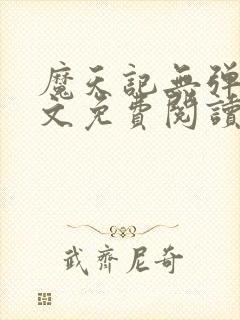 魔天記無弹
文免費閱讀
武齊尼奇